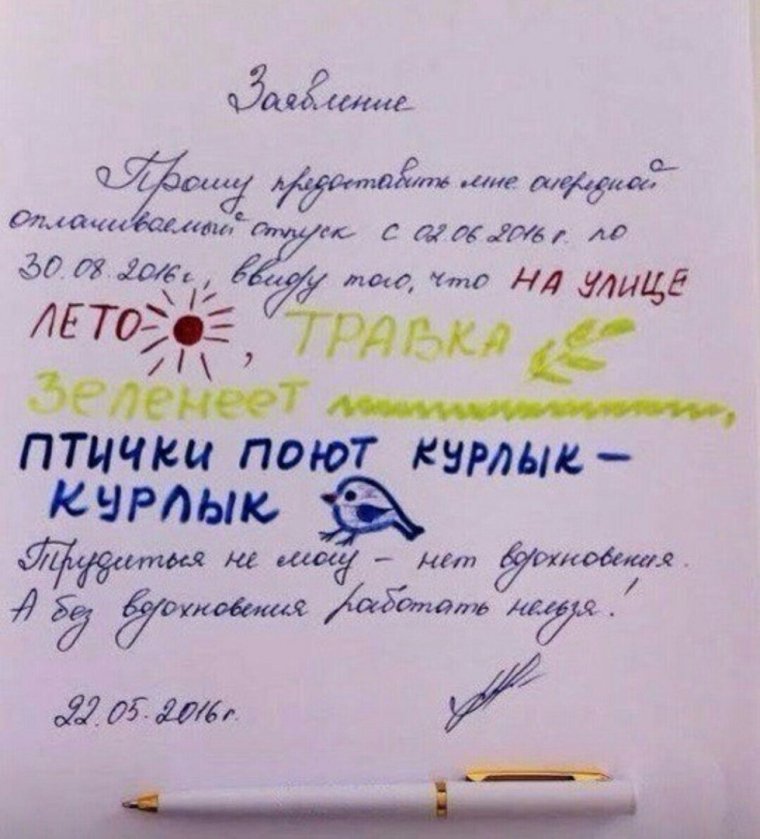 Заявление
Прошу предоставить мне очередной
оплачиваемый отпуск с 02.06.2016г. по
30.08.2016г., ввиду того, что НА УЛИЦЕ
ЛЕТО, ТРАВКА
Зеленеет,
ПТИЧКИ ПОЮТ КУРЛЫК –
КУРЛЫК
Трудиться не могу – нет вдохновения.
А без вдохновения работать нельзя!
22.05.2016г.